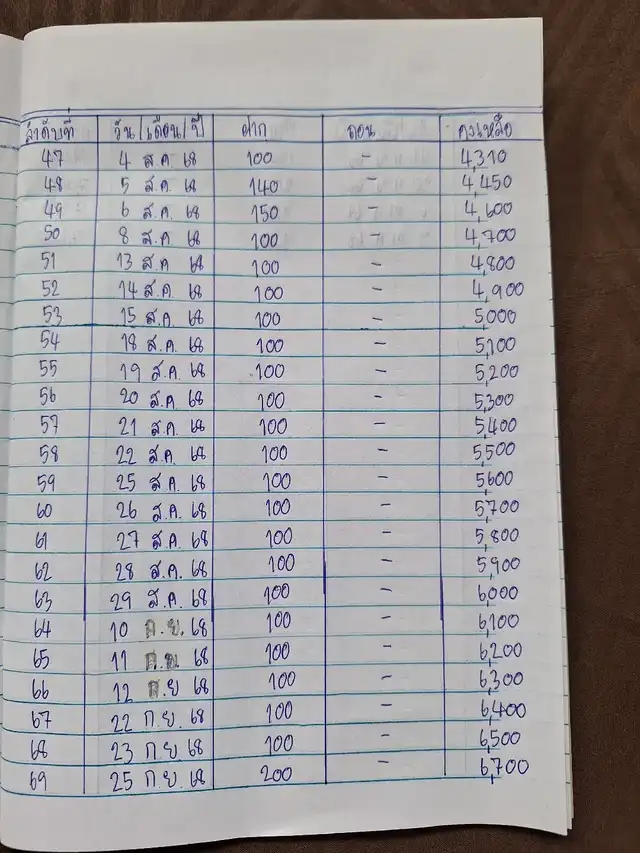 ลำดับที่ วัน/เดือน/ปี ฝาก ถอน คงเหลือ
47 4 ส.ค 68 100 - 4,310
48 5 ส.ค. 68 140 - 4,450
49 6 ส.ค. 68 150 - 4,600
50 8 ส.ค. 68 100 - 4,700
51 13 ส.ค 68 100 - 4,800
52 14 ส.ค 68 100 - 4,900
53 15 ส.ค. 68 100 - 5,000
54 18 ส.ค. 68 100 - 5,100
55 19 ส.ค. 68 100 - 5,200
56 20 ส.ค. 68 100 - 5,300
57 21 ส.ค. 68 100 - 5,400
58 22 ส.ค. 68 100 - 5,500
59 25 ส.ค. 68 100 - 5,600
60 26 ส.ค. 68 100 - 5,700
61 27 ส.ค. 68 100 - 5,800
62 28 ส.ค. 68 100 - 5,900
63 29 ส.ค. 68 100 - 6,000
64 10 ก.ย. 68 100 - 6,100
65 11 ก.ย. 68 100 - 6,200
66 12 ก.ย 68 100 - 6,300
67 22 ก.ย. 68 100 - 6,400
68 23 ก.ย. 68 100 - 6,500
69 25 ก.ย. 68 200 - 6,700